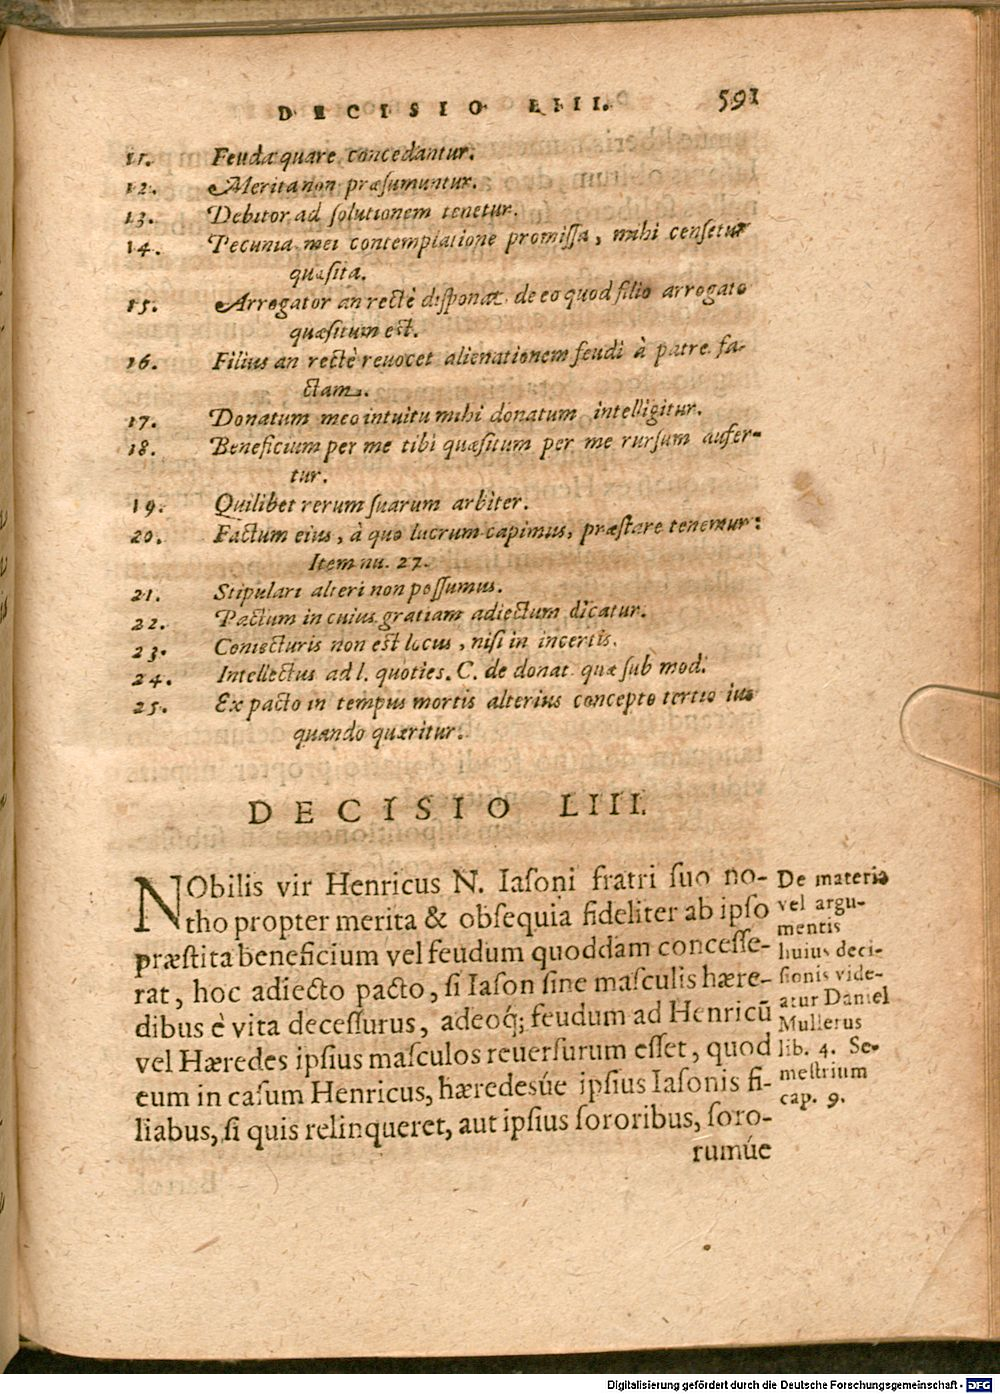 DECISIO LIII. 591
11. Feuda quare concedantur.
12. Merita non præsumuntur.
13. Debitor ad solutionem tenetur.
14. Pecunia mei contemplatione promissa, mihi censetur
quæsita.
15. Arrogator an rectè disponat de eo quod filio arrogato
quæsitum est.
16. Filius an rectè reuocet alienationem feudi à patre fa-
ctam.
17. Donatum meo intuitu mihi donatum intelligitur.
18. Beneficium per me tibi quæsitum per me rursum aufer-
tur.
19. Quilibet rerum suarum arbiter.
20. Factum eius, à quo lucrum capimus, præstare tenemur:
Item nu. 27.
21. Stipulari alteri non possumus.
22. Pactum in cuius gratiam adiectum dicatur.
23. Coniecturis non est locus, nisi in incertis.
24. Intellectus ad l. quoties. C. de donat. quæ sub mod.
25. Ex pacto in tempus mortis alterius concepto tertio ius
quando quæritur.
DECISIO LIII.
NObilis vir Henricus N. Iasoni fratri suo no-
tho propter merita & obsequia fideliter ab ipso
præstita beneficium vel feudum quoddam concesse-
rat, hoc adiecto pacto, si Iason sine masculis hære-
dibus è vita decessurus, adeoq́; feudum ad Henricũ
vel Hæredes ipsius masculos reuersurum esset, quod
eum in casum Henricus, hæredesúe ipsius Iasonis fi-
liabus, si quis relinqueret, aut ipsius sororibus, soro-
rumúe
De materia
vel argu-
mentis
huius deci-
sionis vide-
atur Daniel
Mullerus
lib. 4. Se-
mestrium
cap. 9.
Digitalisierung gefördert durch die Deutsche Forschungsgemeinschaft - DFG